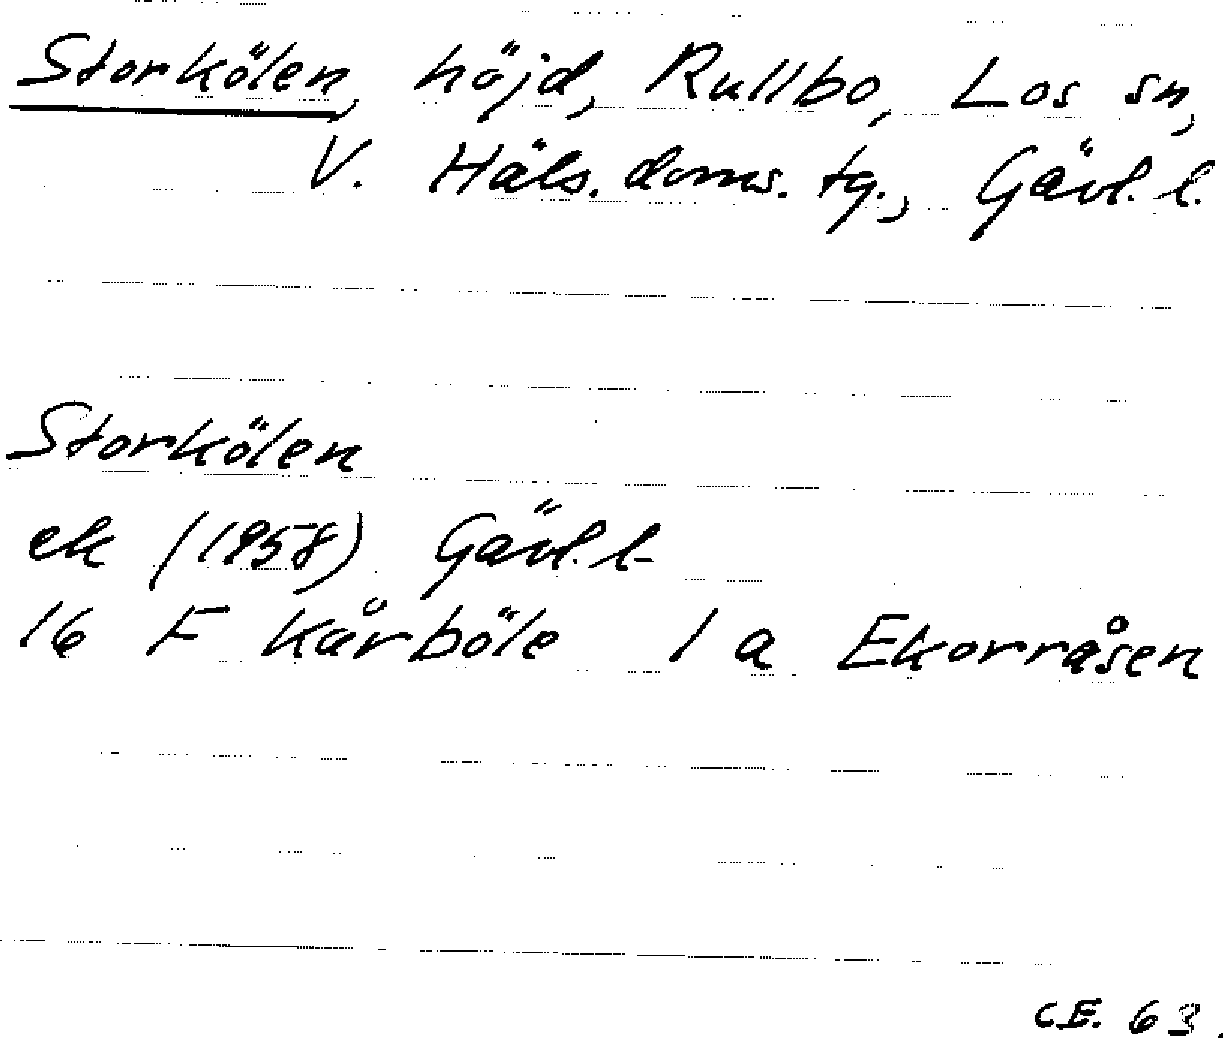 Storkölen, höjd, Rullbo, Los sn,
V. Häls. doms. tg., Gävl. l.
Storkölen
ek (1958) Gävl. l.
16 F Kårböle 1 a Ekorråsen
C.E. 63.